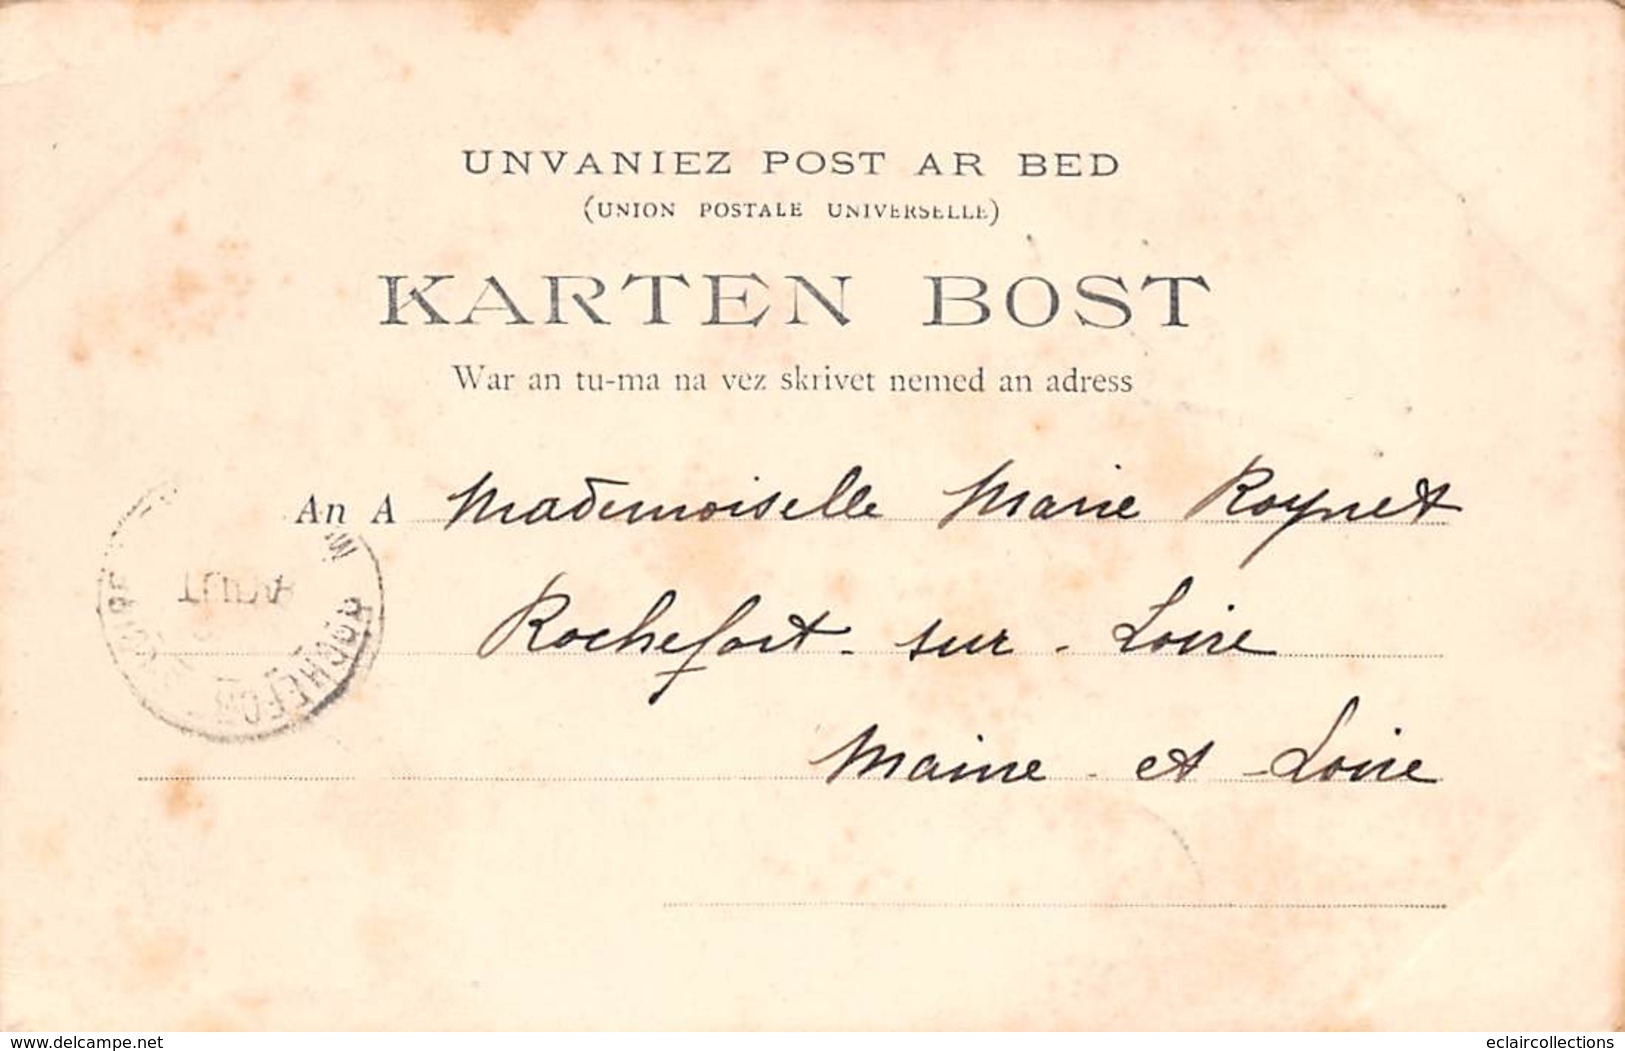 UNVANIEZ POST AR BED
(UNION POSTALE UNIVERSELLE)
KARTEN BOST
War an tu-ma na vez skrivet nemed an adress
An A Mademoiselle Marie Roynet
Rochefort - sur - Loire
Maine - et - Loire
AOUT
ROCHEFOR
www.delcampe.net
eclaircollections